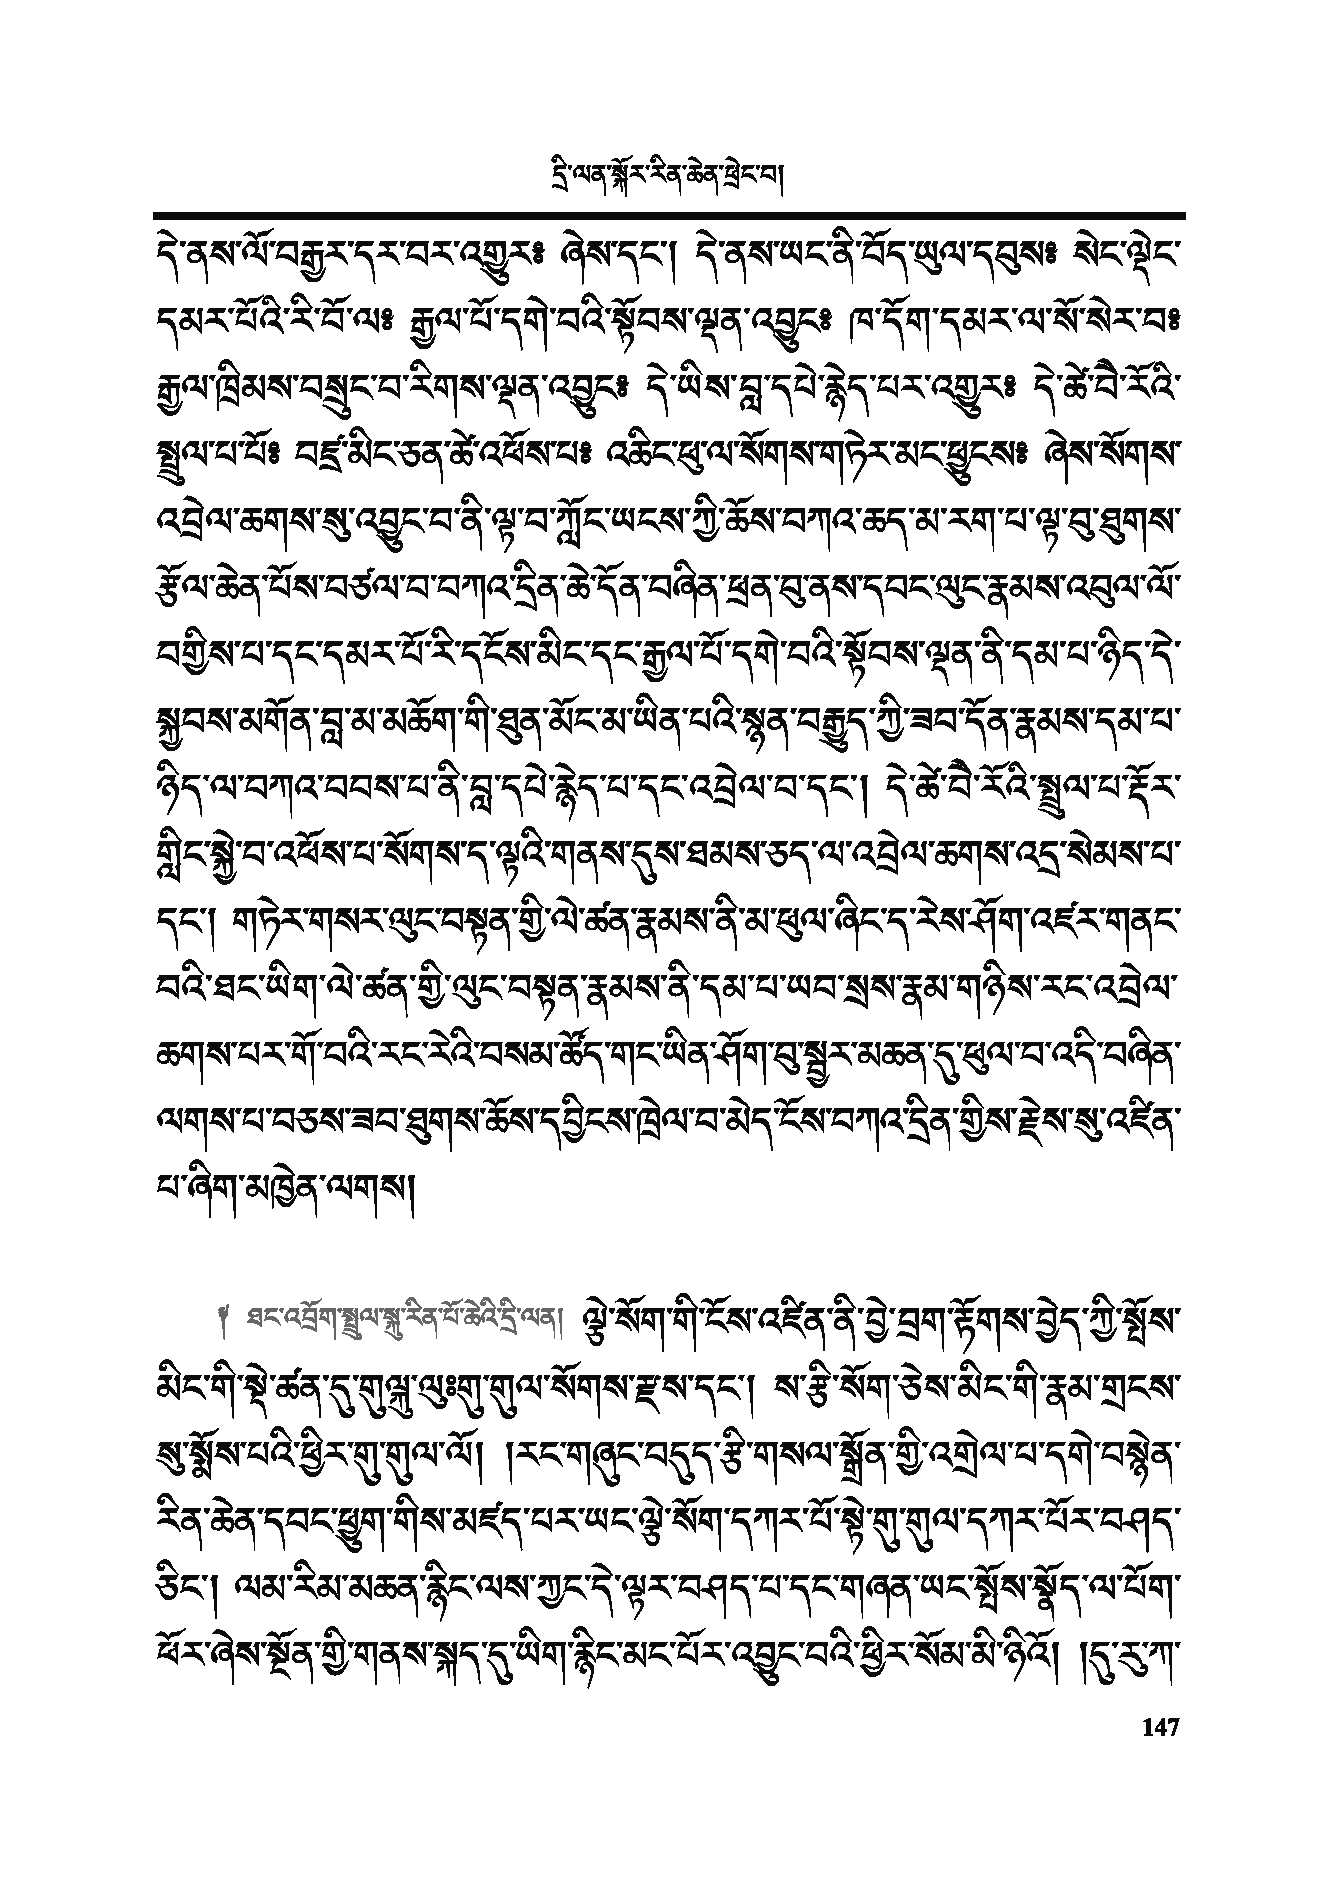 དྲི་ལན་སྐོར་རིན་ཆེན་ཕྲེང་བ།
དེ་ནས་ལོ་བརྒྱར་དར་བར་འགྱུར༔ ཞེས་དང་། དེ་ནས་ཡང་ནི་བོད་ཡུལ་དབུས༔ སེང་ལྡེང་
དམར་པོའི་རི་བོ་ལ༔ རྒྱལ་པོ་དགེ་བའི་སྟོབས་ལྡན་འབྱུང༔ ཁ་དོག་དམར་ལ་སོ་སེར་བ༔
རྒྱལ་ཁྲིམས་བསྲུང་བ་རིགས་ལྡན་འབྱུང༔ དེ་ཡིས་བླ་དཔེ་རྙེད་པར་འགྱུར༔ དེ་ཚེ་བཻ་རོའི་
སྤྲུལ་པ་པོ༔ བཛྲ་མིང་ཅན་ཚེ་འཕོས་པ༔ འཆིང་ཕུ་ལ་སོགས་གཏེར་མང་ཕྱུངས༔ ཞེས་སོགས་
འབྲེལ་ཆགས་སུ་འབྱུང་བ་ནི་ལྟ་བ་ཀློང་ཡངས་ཀྱི་ཆོས་བཀའ་ཆད་མ་རག་པ་ལྟ་བུ་ཐུགས་
རྩོལ་ཆེན་པོས་བཙལ་བ་བཀའ་དྲིན་ཆེ་དོན་བཞིན་ཕྲན་བུ་ནས་དབང་ལུང་རྣམས་འབུལ་ལོ་
བགྱིས་པ་དང་དམར་པོ་རི་དངོས་མིང་དང་རྒྱལ་པོ་དགེ་བའི་སྟོབས་ལྡན་ནི་དམ་པ་ཉིད་དེ་
སྐྱབས་མགོན་བླ་མ་མཆོག་གི་ཐུན་མོང་མ་ཡིན་པའི་སྙན་བརྒྱུད་ཀྱི་ཟབ་དོན་རྣམས་དམ་པ་
ཉིད་ལ་བཀའ་བབས་པ་ནི་བླ་དཔེ་རྙེད་པ་དང་འབྲེལ་བ་དང་། དེ་ཚེ་བཻ་རོའི་སྤྲུལ་པ་རྡོར་
གླིང་སྐྱེ་བ་འཕོས་པ་སོགས་ད་ལྟའི་གནས་དུས་ཐམས་ཅད་ལ་འབྲེལ་ཆགས་འདྲ་སེམས་པ་
དང་། གཏེར་གསར་ལུང་བསྟན་གྱི་ལེ་ཚན་རྣམས་ནི་མ་ཕུལ་ཞིང་ད་རེས་ཤོག་འཛར་གནང་
བའི་ཐང་ཡིག་ལེ་ཚན་གྱི་ལུང་བསྟན་རྣམས་ནི་དམ་པ་ཡབ་སྲས་རྣམ་གཉིས་རང་འབྲེལ་
ཆགས་པར་གོ་བའི་རང་རེའི་བསམ་ཚོད་གང་ཡིན་ཤོག་བུ་སྦྱར་མཆན་དུ་ཕུལ་བ་འདི་བཞིན་
ལགས་པ་བཅས་ཟབ་ཐུགས་ཆོས་དབྱིངས་ཁྲེལ་བ་མེད་ངོས་བཀའ་དྲིན་གྱིས་རྗེས་སུ་འཛིན་
པ་ཞིག་མཁྱེན་ལགས།
༈ ཐང་འབྲོག་སྤྲུལ་སྐུ་རིན་པོ་ཆེའི་དྲི་ལན། ལྕེ་སོག་གི་ངོས་འཛིན་ནི་བྱེ་བྲག་རྟོགས་བྱེད་ཀྱི་སྤོས་
མིང་གི་སྡེ་ཚན་དུ་གུལྐུ་ལུཿགུ་གུལ་སོགས་རྫས་དང་། ས་རྩི་སོག་ཅེས་མིང་གི་རྣམ་གྲངས་
སུ་སྨོས་པའི་ཕྱིར་གུ་གུལ་ལོ། །རང་གཞུང་བདུད་རྩི་གསལ་སྒྲོན་གྱི་འགྲེལ་པ་དགེ་བསྙེན་
རིན་ཆེན་དབང་ཕྱུག་གིས་མཛད་པར་ཡང་ལྕེ་སོག་དཀར་པོ་སྟེ་གུ་གུལ་དཀར་པོར་བཤད་
ཅིང་། ལམ་རིམ་མཆན་རྙིང་ལས་ཀྱང་དེ་ལྟར་བཤད་པ་དང་གཞན་ཡང་སྤོས་སྣོད་ལ་པོག་
ཕོར་ཞེས་སྔོན་གྱི་གནས་སྐད་དུ་ཡིག་རྙིང་མང་པོར་འབྱུང་བའི་ཕྱིར་སོམ་མི་ཉིའོ། །དུ་རུ་ཀ་
147